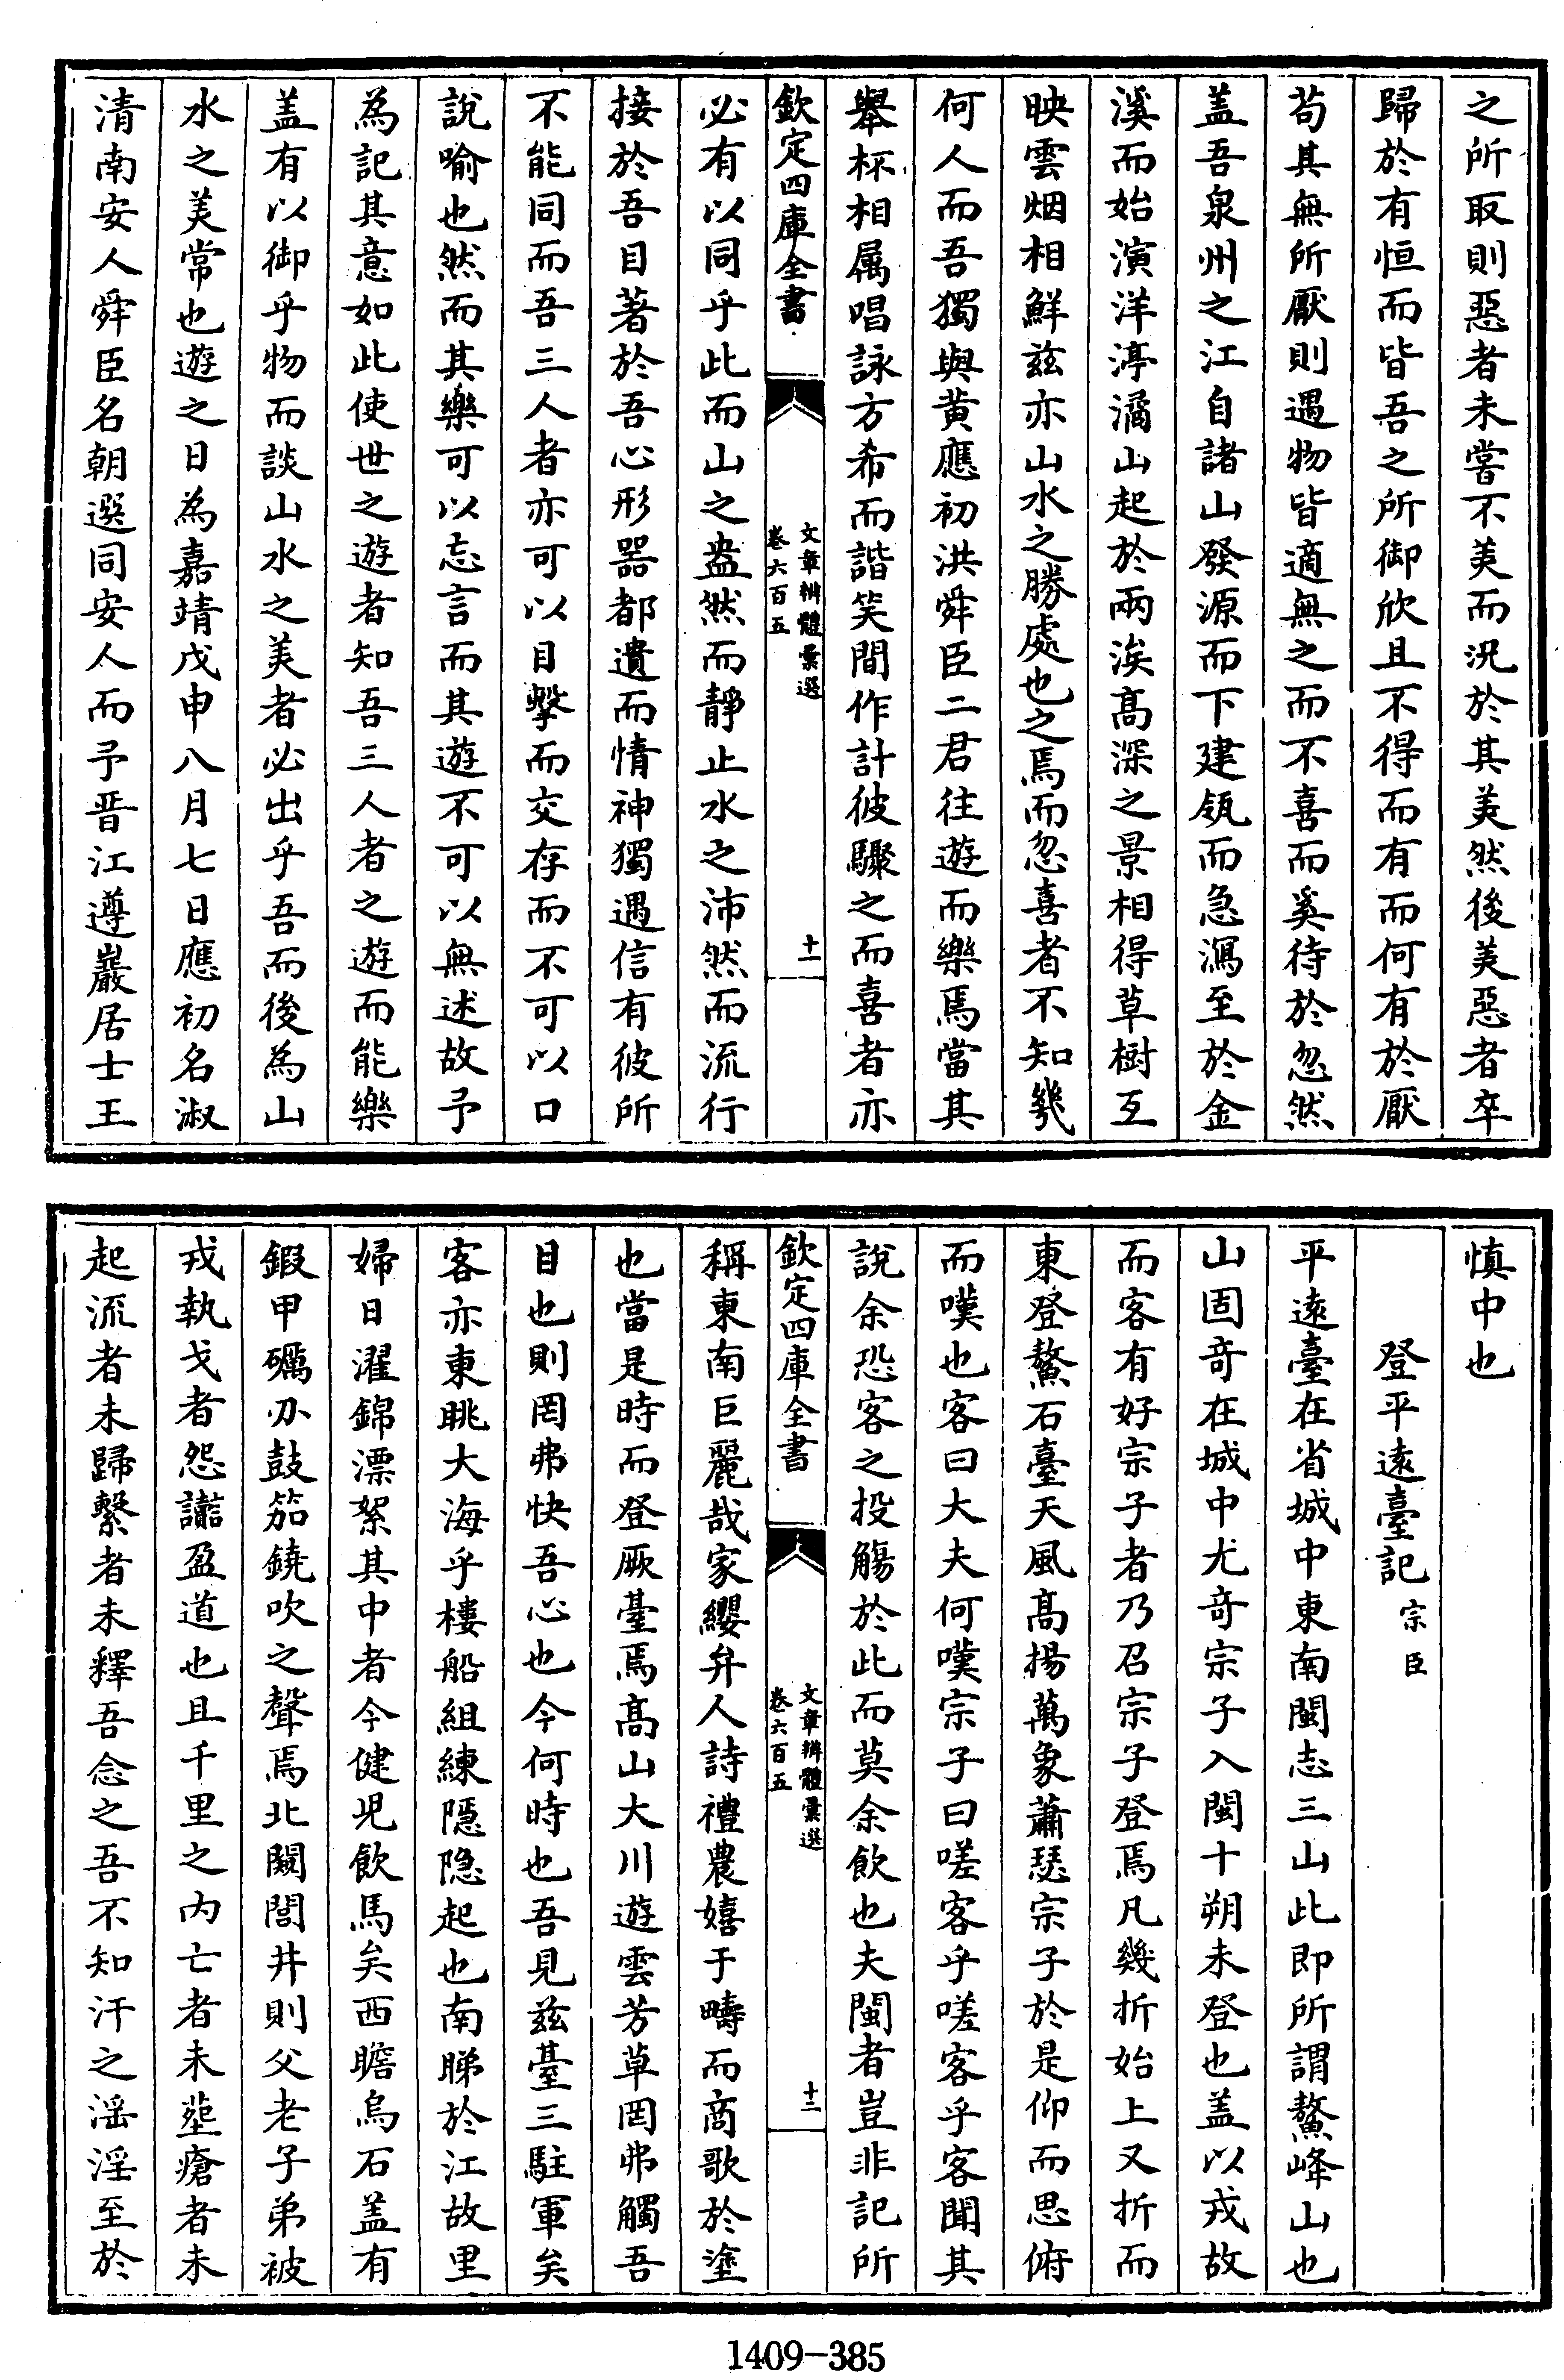 之所取則惡者未嘗不美而況於其美然後美惡者卒
歸於有恒而皆吾之所御欣且不得而有而何有於厭
苟其無所厭則遇物皆適無之而不喜而奚待於忽然
盖吾泉州之江自諸山發源而下建瓴而急瀉至於金
溪而始演洋渟潏山起於兩涘髙深之景相得草樹互
映雲烟相鮮兹亦山水之勝處也之焉而忽喜者不知幾
何人而吾獨與黄應初洪舜臣二君往遊而樂焉當其
舉杯相属唱詠方希而諧笑間作計彼驟之而喜者亦
欽定四庫全書
文章辨體彙選
卷六百五
十一
必有以同乎此而山之盎然而靜止水之沛然而流行
接於吾目著於吾心形器都遺而情神獨遇信有彼所
不能同而吾三人者亦可以目擊而交存而不可以口
說喻也然而其樂可以忘言而其遊不可以無述故予
為記其意如此使世之遊者知吾三人者之遊而能樂
盖有以御乎物而談山水之美者必出乎吾而後為山
水之美常也遊之日為嘉靖戊申八月七日應初名淑
清南安人舜臣名朝選同安人而予晋江遵巖居士王
慎中也
登平遠臺記 宗臣
平遠臺在省城中東南閩志三山此即所謂鰲峰山也
山固竒在城中尤竒宗子入閩十朔未登也盖以戎故
而客有好宗子者乃召宗子登焉凡幾折始上又折而
東登鰲石臺天風髙揚萬象蕭瑟宗子於是仰而思俯
而嘆也客曰大夫何嘆宗子曰嗟客乎嗟客乎客聞其
說余恐客之投觴於此而莫余飲也夫閩者豈非記所
欽定四庫全書
文章辨體彙選
卷六百五
十二
稱東南巨麗哉家纓弁人詩禮農嬉于疇而商歌於塗
也當是時而登厥臺焉髙山大川遊雲芳草罔弗觸吾
目也則罔弗快吾心也今何時也吾見兹臺三駐軍矣
客亦東眺大海乎樓船組練隱隐起也南睇於江故里
婦日濯錦漂絮其中者今健兒飲馬矣西瞻烏石盖有
鍜甲礪刃鼓笳鐃吹之聲焉北闞閭井則父老子弟被
戎執戈者怨讟盈道也且千里之内亡者未塟瘡者未
起流者未歸繫者未釋吾念之吾不知汗之淫淫至於
1409-385